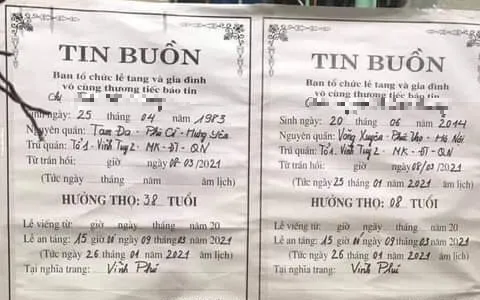 TIN BUỒN
Ban tổ chức lễ tang và gia đình
vô cùng thương tiếc báo tin
Chị
Sinh ngày: 25 tháng 04 năm 1983
Nguyên quán: Tam Đa - Phù Cừ - Hưng Yên
Trú quán: Tổ 1 - Vĩnh Tuy 2 - MK - ĐT - QN
Từ trần hồi: giờ ngày 08-03/2021
(Tức ngày tháng năm âm lịch)
HƯỞNG THỌ: 38 TUỔI
Lễ viếng từ: giờ ngày tháng năm 20
Lễ an táng: 15 giờ 00 ngày 09 tháng 03 năm 2021
(Tức ngày 26 tháng 01 năm 2021 âm lịch)
Tại nghĩa trang: Vĩnh Phú
TIN BUỒN
Ban tổ chức lễ tang và gia đình
vô cùng thương tiếc báo tin
Sinh ngày: 20 tháng 06 năm 2014
Nguyên quán: Võng Xuyên - Phúc Thọ - Hà Nội
Trú quán: Tổ 1 - Vĩnh Tuy 2 - MK - ĐT - QN
Từ trần hồi: giờ ngày 08/03/2021
(Tức ngày 25 tháng 01 năm 2021 âm lịch)
HƯỞNG THỌ: 08 TUỔI
Lễ viếng từ: giờ ngày tháng năm 20
Lễ an táng: 15 giờ ngày 09 tháng 03 năm 2021
(Tức ngày 26 tháng 01 năm 2021 âm lịch)
Tại nghĩa trang: Vĩnh Phú